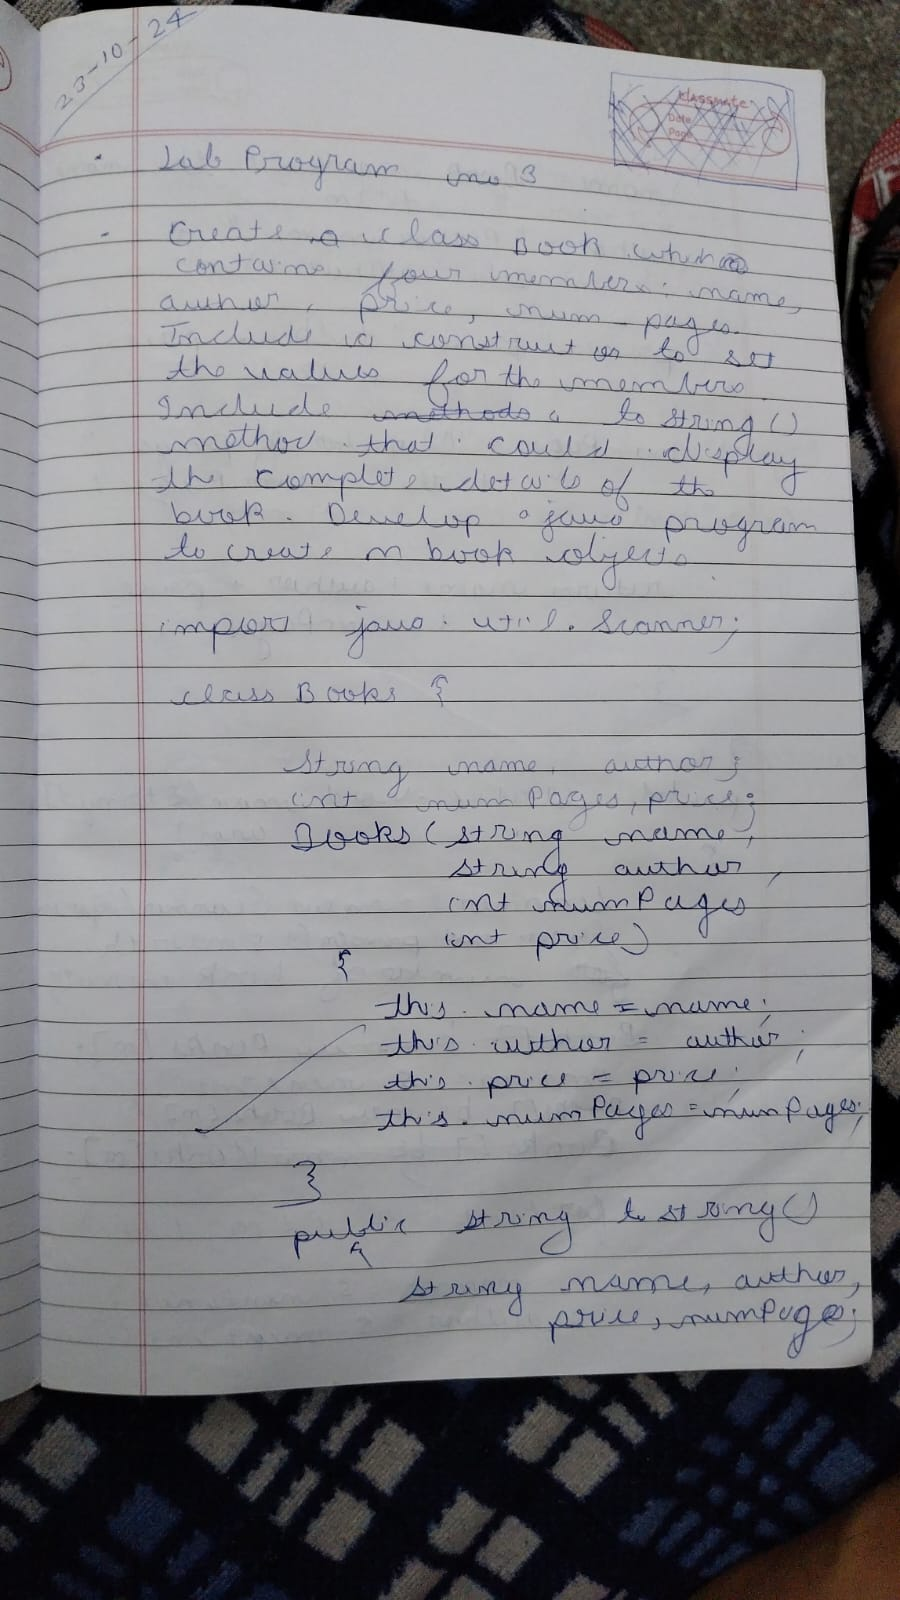 23-10-24
classmate
Date
Page
Lab Program no 3
Create a class Book which
contains four members: name,
author, price, num-pages.
Include a constructor to set
the values for the members.
Include methods a toString()
method that could display
the complete details of the
book. Develop a java program
to create n book objects
import java.util.Scanner;
class Books {
String name, author;
int numPages, price;
Books(String name,
String author,
int numPages
int price)
{
this.name = name;
this.author = author;
this.price = price;
this.numPages = numPages;
}
public String toString()
{
String name, author,
price, numPage;